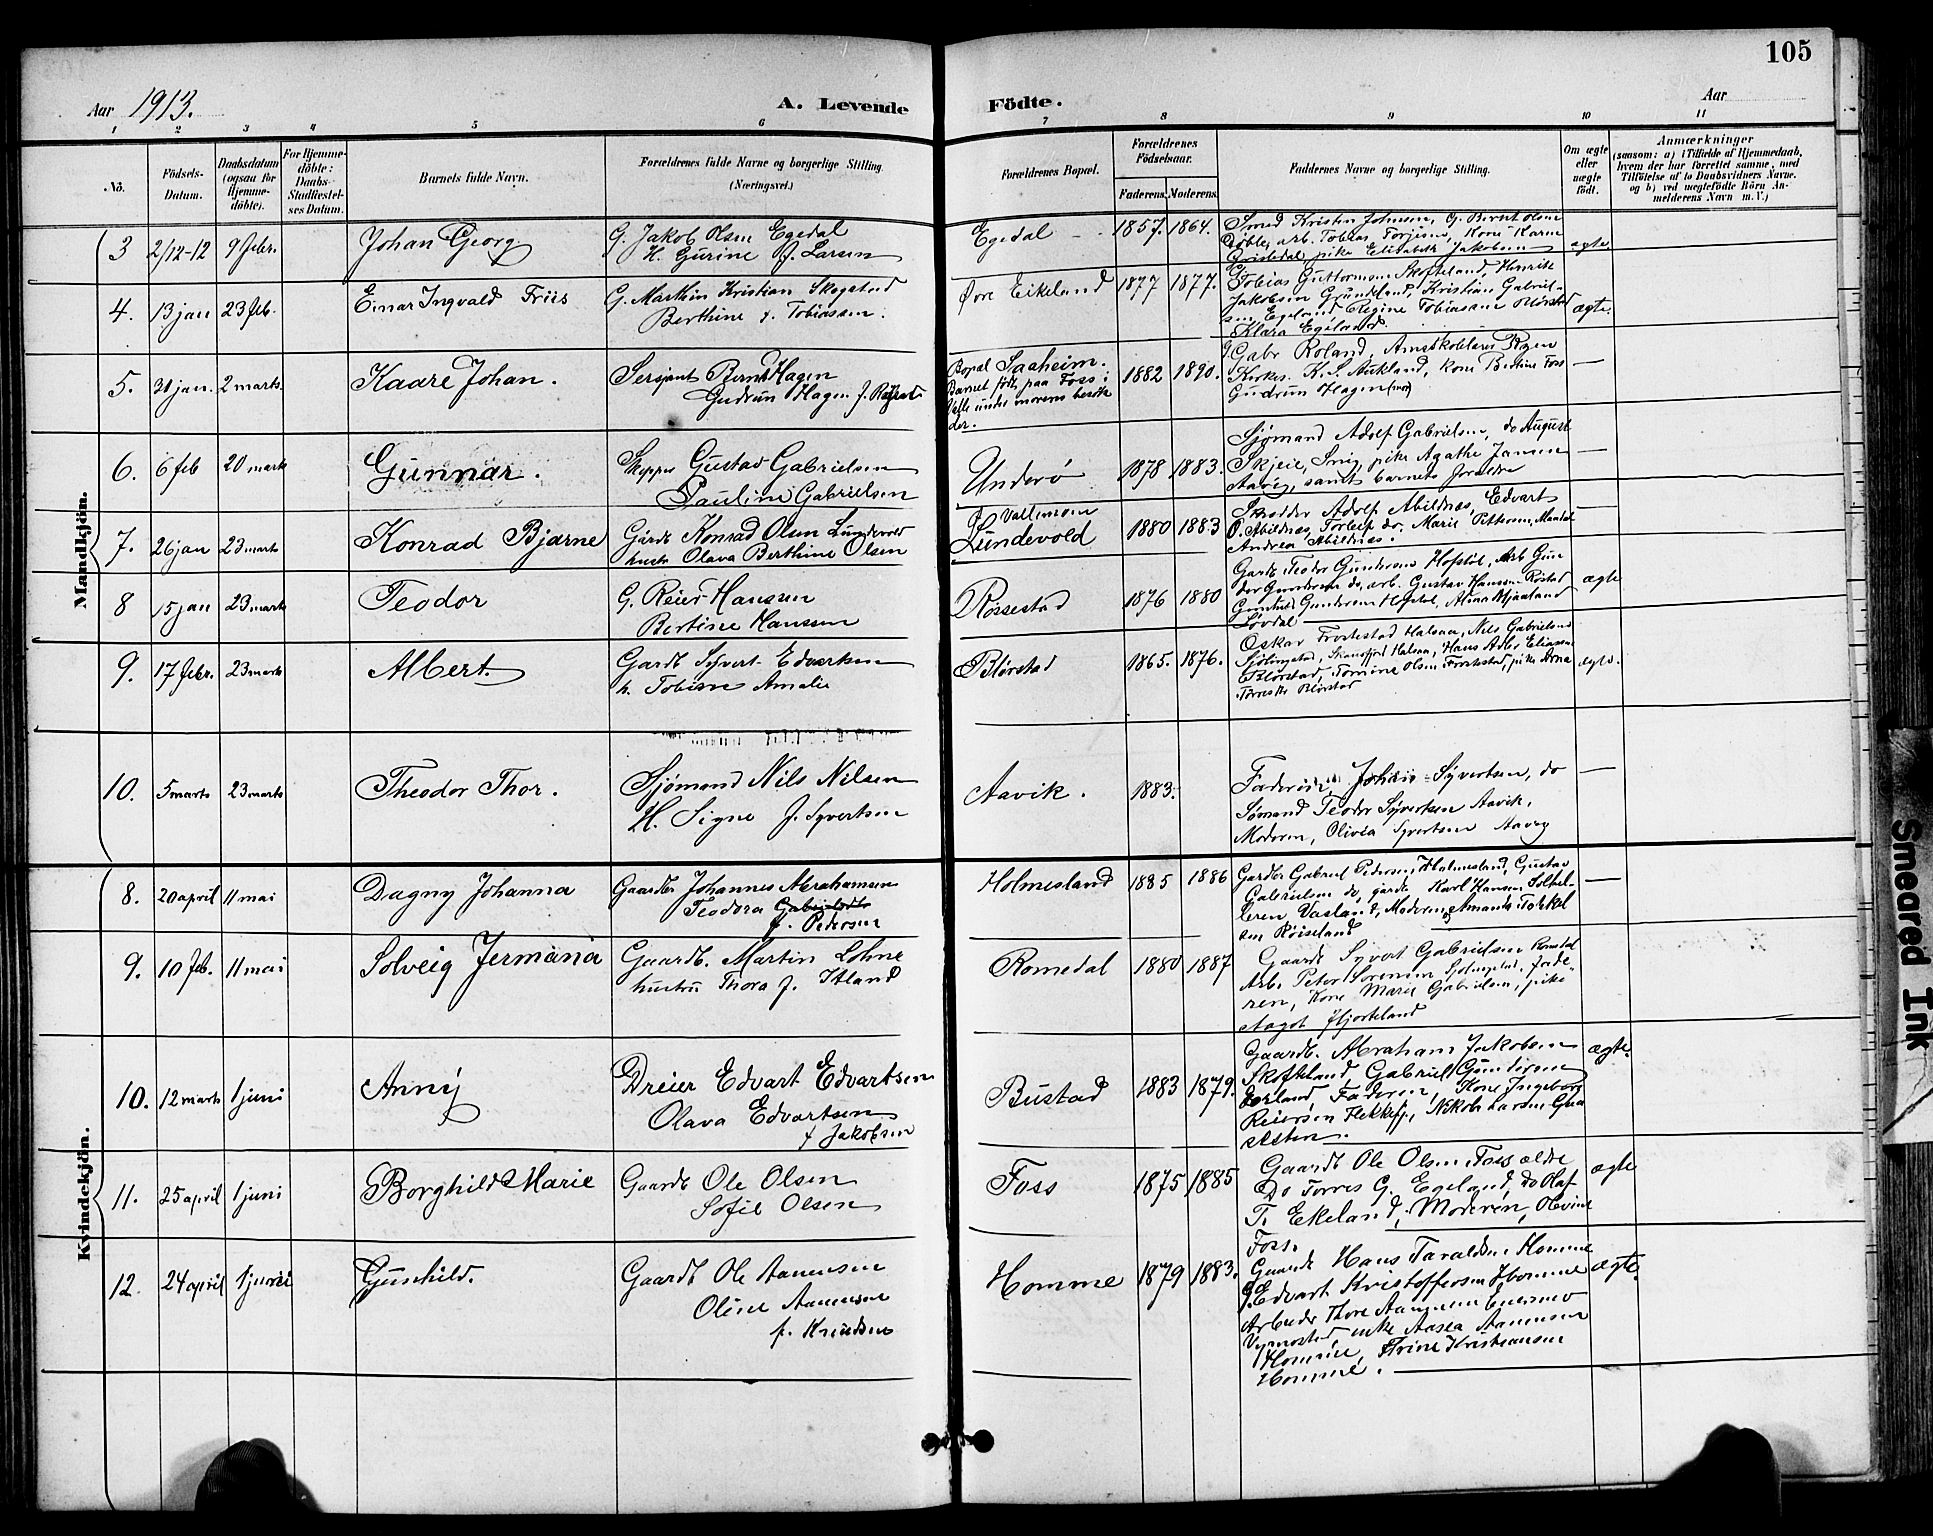 105
Aar 1913.
A. Levende Födte.
Aar
1 2 3 4 5 6 7 8 9 10 11
No.
Födsels-Datum.
Daabsdatum (ogsaa for Hjemme-döbte).
For Hjemme-döbte: Daabs-Stadfæstelses Datum.
Barnets fulde Navn.
Forældrenes fulde Navne og borgerlige Stilling. (Næringsvei.)
Forældrenes Bopæl.
Forældrenes Födselsaar.
Faderens. Moderens.
Faddernes Navne og borgerlige Stilling.
Om ægte eller uægte födt.
Anmærkninger
(saasom: a) i Tilfælde af Hjemmedaab, hvem der har forrettet samme, med Tilföielse af to Daabsvidners Navne, og b) ved uægtefödte Börn Anmelderens Navn m. V.)
Mandkjön.
3 2/12-12 9 febr. Johan Georg
G. Jakob Olsen Egedal
H. Gurine f. Larsen
Egedal 1857. 1864.
Smed Kristen Johnsen, G. Bernt Olsen
arb. Tobias Torjesen, Kone Karen
pike Elisabeth Jakobsen
ægte
4. 13 jan 23 feb. Einar Ingvald Friis
G. Marthin Kristian Skogstad
Berthine f. Tobiassen.
Øvre Eikeland 1877 1877.
Tobias Guttormsen Skofteland, Henrik
Jakobsen Grundeland, Kristian Gabriel-
sen Egeland, Regine Tobiasen Blørstad
Klara Egeland
ægte.
5. 31 jan. 2 marts. Kaare Johan.
Sersjant Bernt Hagen
Gudrun Hagen f.
Bopæl Saaheim.
Barnet födt paa Foss i
Valle under morens besök
der.
1882 1890.
Gabr Roland,
Kirkes. K. S. Birkland, kone Bertine Foss
Gudrun Hagen (mor)
6. 6 feb 20 mark Gunnar.
Skipper Gustav Gabrielsen
Pauline Gabrielsen
Underø 1878 1883.
Sjømand Adolf Gabrielsen, do August
Skjeie, Snig, pike Agathe Jansen
Aavig, samt barnets foreldre
f. Vallemoen
7. 26 jan 23 marts Konrad Bjarne
Gårdb Konrad Olsen Lundevold
hustr Olava Berthine Olsen
Lundevold 1880 1883
Skredder Adolf Abildnæs, Edvart
O. Abildnæs, Torleif do, Marie Pettersen,
Andrea Abildnæs.
8 15 jan 23 mark Teodor
G. Reier Hanssen
Bertine Hanssen
Røssestad 1876 1880
Gardb. Teodor Gundersen Hofstøl, Arb Gun
der Gundersen do, arb. Gustav Hansen Røstad
Gunhild Gundersen Hofstøl, Alma Mjaaland
Løvdal
ægte
9. 17 febr. 23 marts Albert.
Gardb Syvert Edvartsen
h. Tobine Amalie
Blørstad 1865. 1876.
Oskar Frøstestad Halsaa, Nils Gabrielsen
Sjølingstad, Halsaa, Hans Atle Eliassen
Blørstad, Tomine Olsen Frøstestad, pike Anna
Torreste Blørstad
ægte.
10. 5 marts 23 marts Theodor Thor.
Sjömand Nils Nilsen
H. Signe f. Syvertsen
Aavik. 1883.
Johan Syvertsen, do
Sømand Teodor Syvertsen Aavik,
Moderen, Olivea Syvertsen Aavig
Kvindekjön.
8. 20 april 11 mai Dagny Johanna
Gaardbr Johannes Abrahamsen
Teodora
f. Pedersen
Holmesland 1885 1886
Gardbr Gabriel Pedersen, Holmesland, Gustav
Gabrielsen do, gardb Karl Hansen
Vasland, Moderen og Amanda Torkel
sen Røiseland
9. 10 feb. 11 mai Solveig Jermana
Gaardb. Martin Lohne
hustru Thora f. Itland
Romedal 1880 1887
Gaardb Syvert Gabrielsen Romedal
Arb. Peter Sorensen Sjølingstad, fade-
ren, Kone Marie Gabrielsen, pike
Aagot Hjorteland
10. 12 marts 1 juni Anny
Dreier Edvart Edvartsen
Olava Edvartsen
f Jakobsen
Bustad 1883 1879.
Gaardb. Abraham Jakobsen
Skofteland Gabriel Gundersen
Faderen, Kone Ingeborg
Reiersen Flekkefj., Nikoline Larsen

ægte.
11. 25 april 1 juni Borghild Marie
Gaardb Ole Olsen
Sofie Olsen
Foss 1875 1885
Gaardb Ole Olsen Foss ældre
Do Torres G. Egeland, do Olaf
T. Ekeland, Moderen, Olevine
Foss.
ægte
12. 24 april 1 juni Gunhild.
Gaardb Ole Aanensen
Oline Aanensen
f. Knudsen
Homme 1879 1883.
Gaardb Hans Taraldsen Homme
G. Edvart Kristoffersen Homme
Arbeider Thore Aanensen
Vigmostad, enke Aasea Aanensen
Homme, Trine Kristiansen
Homme.
ægte.
Smeared Ink